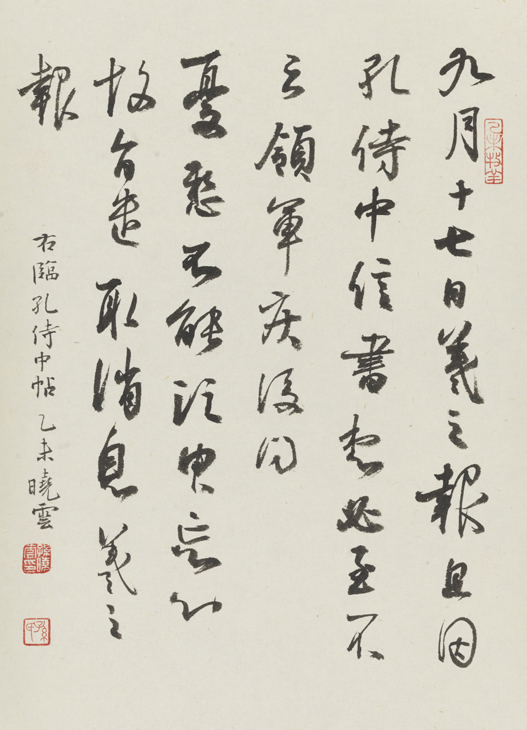 九月十七日羲之報且因
孔侍中信書想必至不
知領軍疾後問
憂懸不能須臾忘心
故旨遣取消息羲之
報
右臨孔侍中帖 乙未曉雲